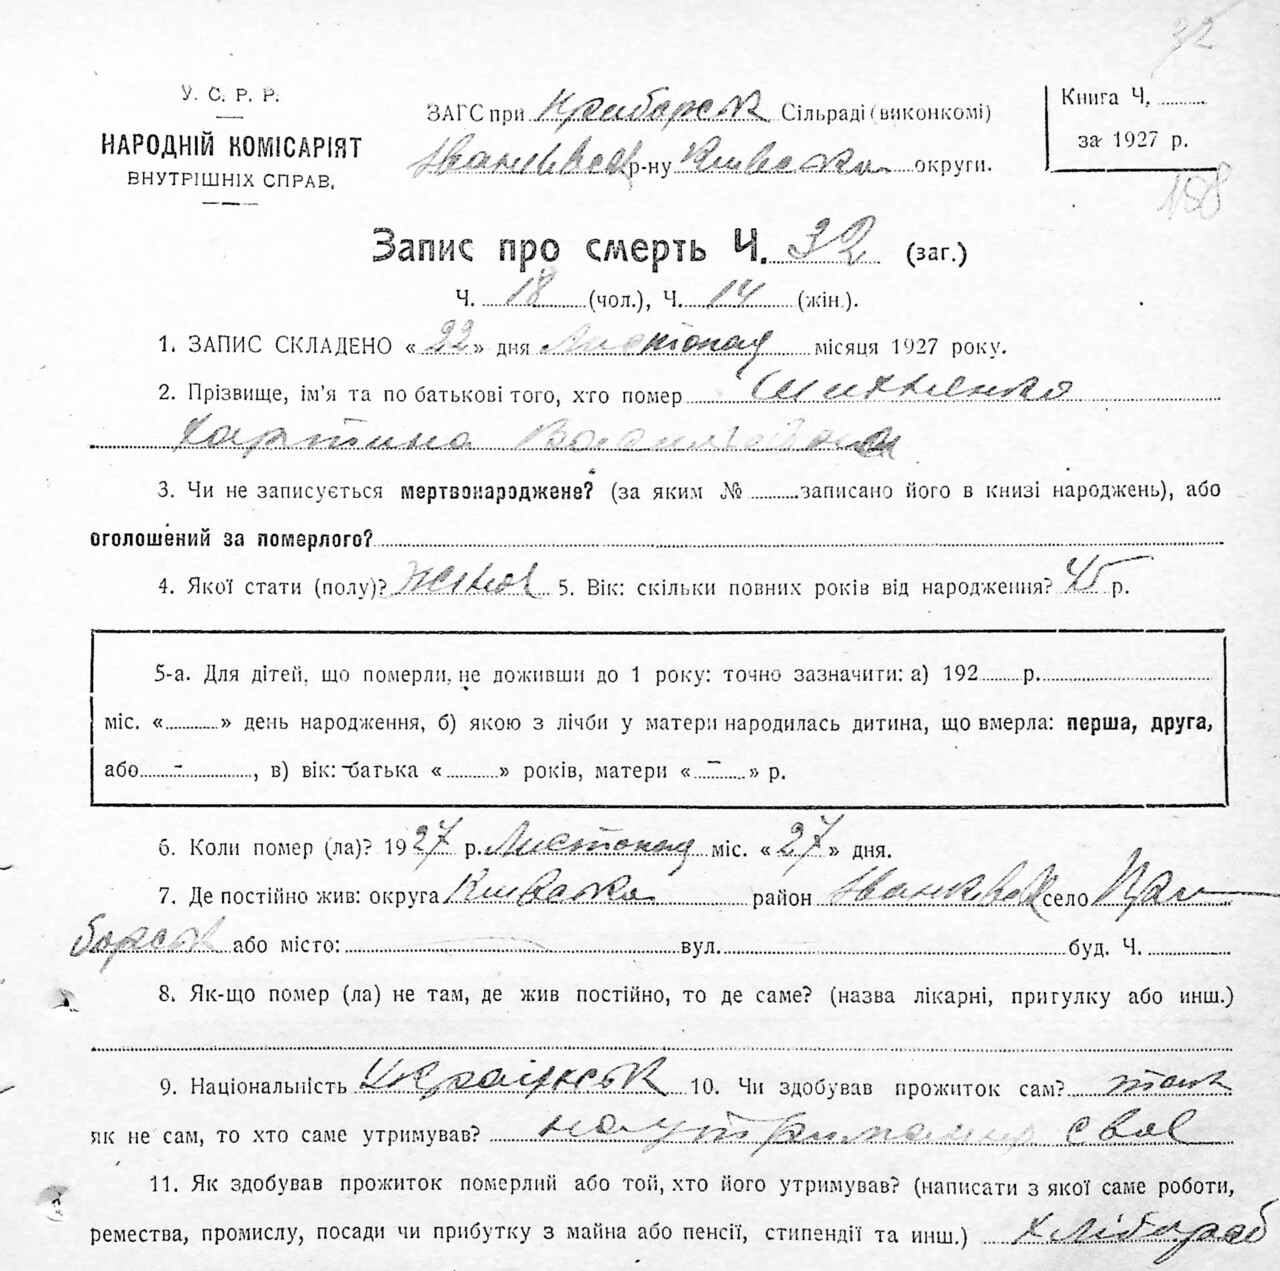 32
У. С. Р. Р.
НАРОДНІЙ КОМІСАРІЯТ
ВНУТРІШНІХ СПРАВ.
ЗАГС при Приборськ Сільраді (виконкомі)
Іванківськ р-ну Київська округи.
Книга Ч.
за 1927 р.
158
Запис про смерть Ч. 32 (заг.)
Ч. 18 (чол.), Ч. 14 (жін.).
1. ЗАПИС СКЛАДЕНО « 22 » дня Листопад місяця 1927 року.
2. Прізвище, ім'я та по батькові того, хто помер
Василівна
3. Чи не записується мертвонароджене? (за яким № записано його в книзі народжень), або
оголошений за померлого?
4. Якої стати (полу)? Жіноч 5. Вік: скільки повних років від народження? 45 р.
5-а. Для дітей, що померли, не доживши до 1 року: точно зазначити: а) 192 р.
міс. « » день народження, б) якою з лічби у матери народилась дитина, що вмерла: перша, друга,
або - , в) вік: батька « » років, матери « - » р.
6. Коли помер (ла)? 1927 р. Листопад міс. « 27 » дня.
7. Де постійно жив: округа Київська район Іванківськ село При
борськ або місто: вул. буд. Ч.
8. Як-що помер (ла) не там, де жив постійно, то де саме? (назва лікарні, пригулку або инш.)
9. Національність Українськ 10. Чи здобував прожиток сам?
як не сам, то хто саме утримував? на утриманню
11. Як здобував прожиток померлий або той, хто його утримував? (написати з якої саме роботи,
ремества, промислу, посади чи прибутку з майна або пенсії, стипендії та инш.) Хлібороб